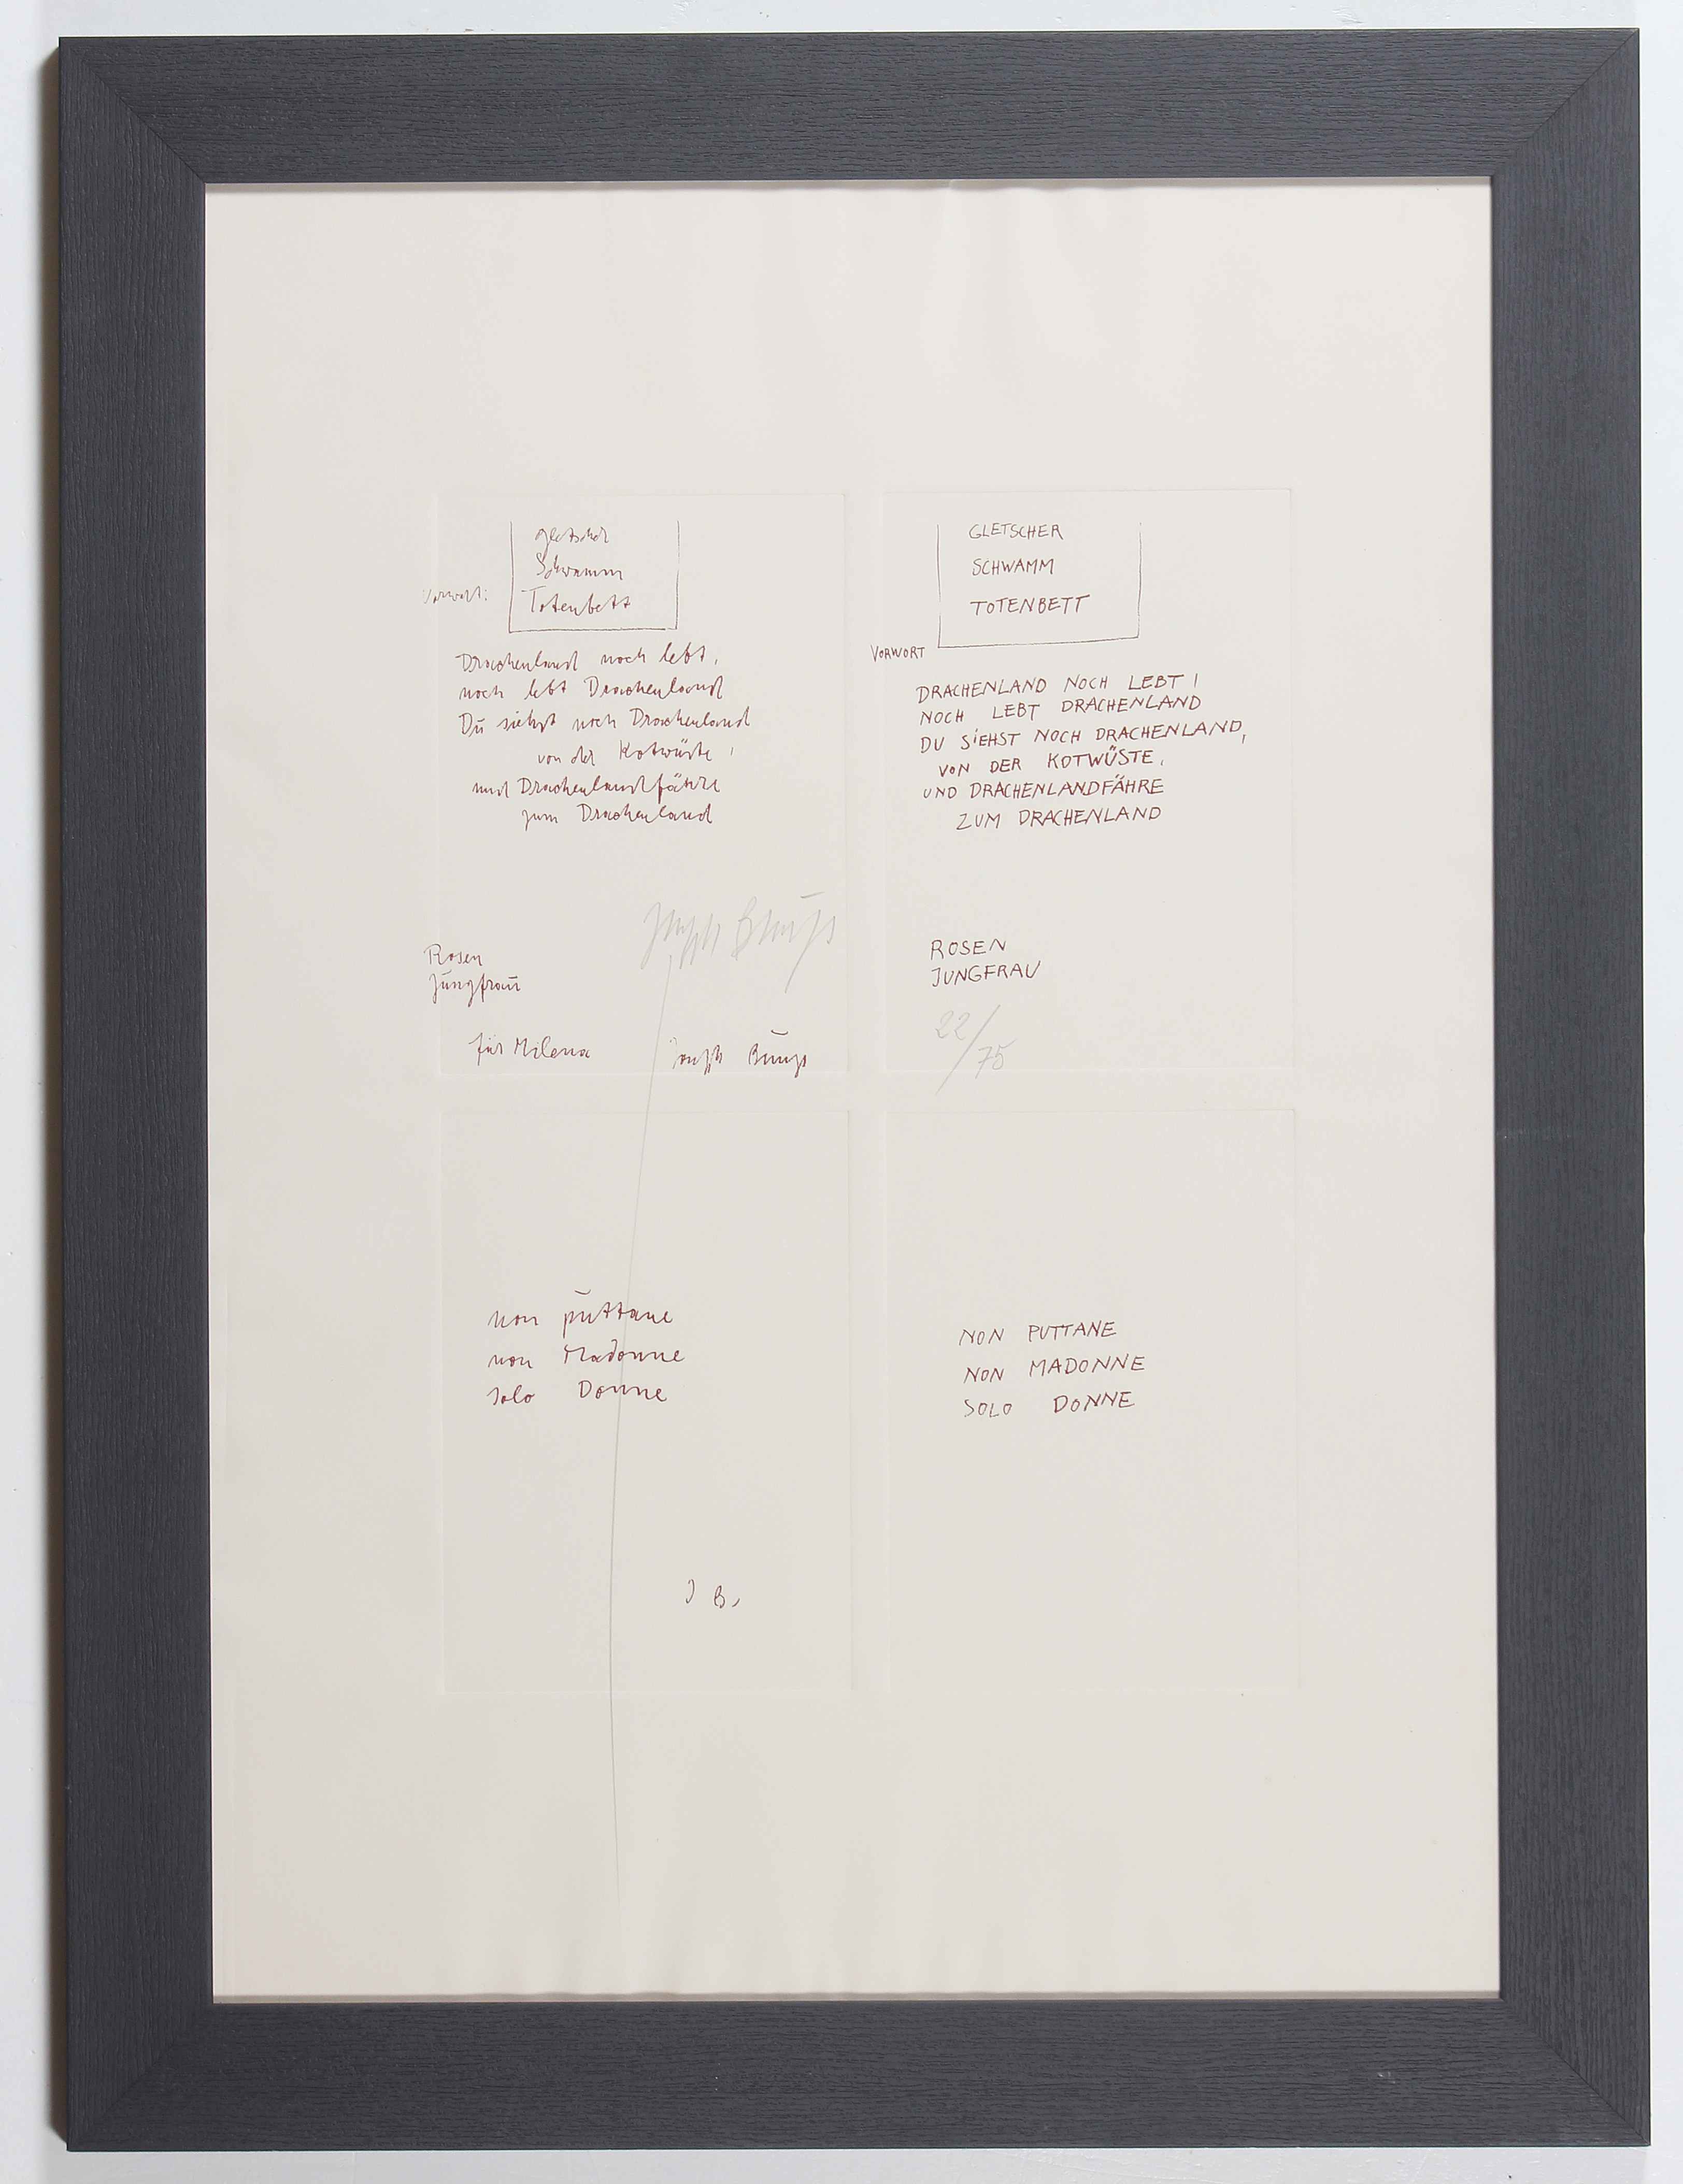 Vorwort:
gletscher
Schwamm
Totenbett
Drachenland noch lebt,
noch lebt Drachenland
Du siehst noch Drachenland
von der Kotwüste,
und Drachenlandfähre
zum Drachenland
Joseph Beuys
Rosen
Jungfrau
für Milena Joseph Beuys
GLETSCHER
SCHWAMM
TOTENBETT
VORWORT
DRACHENLAND NOCH LEBT,
NOCH LEBT DRACHENLAND
DU SIEHST NOCH DRACHENLAND,
VON DER KOTWÜSTE,
UND DRACHENLANDFÄHRE
ZUM DRACHENLAND
ROSEN
JUNGFRAU
22/75
non puttane
non Madonne
solo Donne
J B.
NON PUTTANE
NON MADONNE
SOLO DONNE